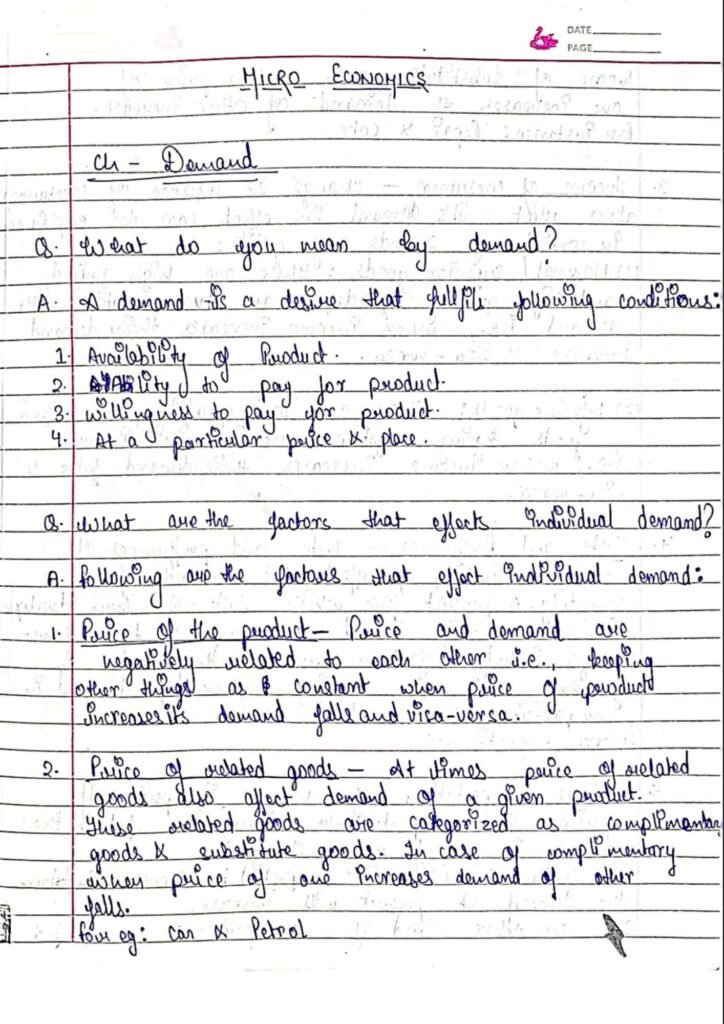 DATE
PAGE
MICRO ECONOMICS
Ch - Demand
Q. What do you mean by demand?
A. A demand is a desire that fullfils following conditions:
1. Availability of Product.
2. Ability to pay for product.
3. willingness to pay for product.
4. At a particular price & place.
Q. What are the factors that effects individual demand?
A. following are the factors that effect individual demand:
1. Price of the product - Price and demand are
negatively related to each other i.e., keeping
other things as constant when price of product
increases its demand falls and vica-versa.
2. Price of related goods - At times price of related
goods also affect demand of a given product.
These related goods are categorized as complimentary
goods & substitute goods. In case of complimentory
when price of one increases demand of other
falls.
for eg: car & Petrol